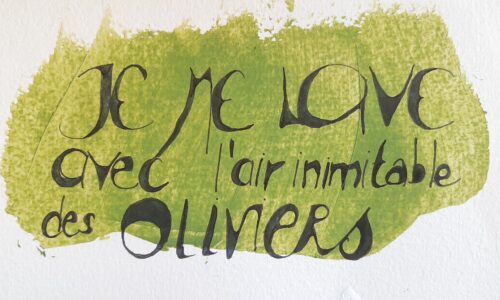 JE ME LAVE
avec l'air inimitable
des OLIVIERS